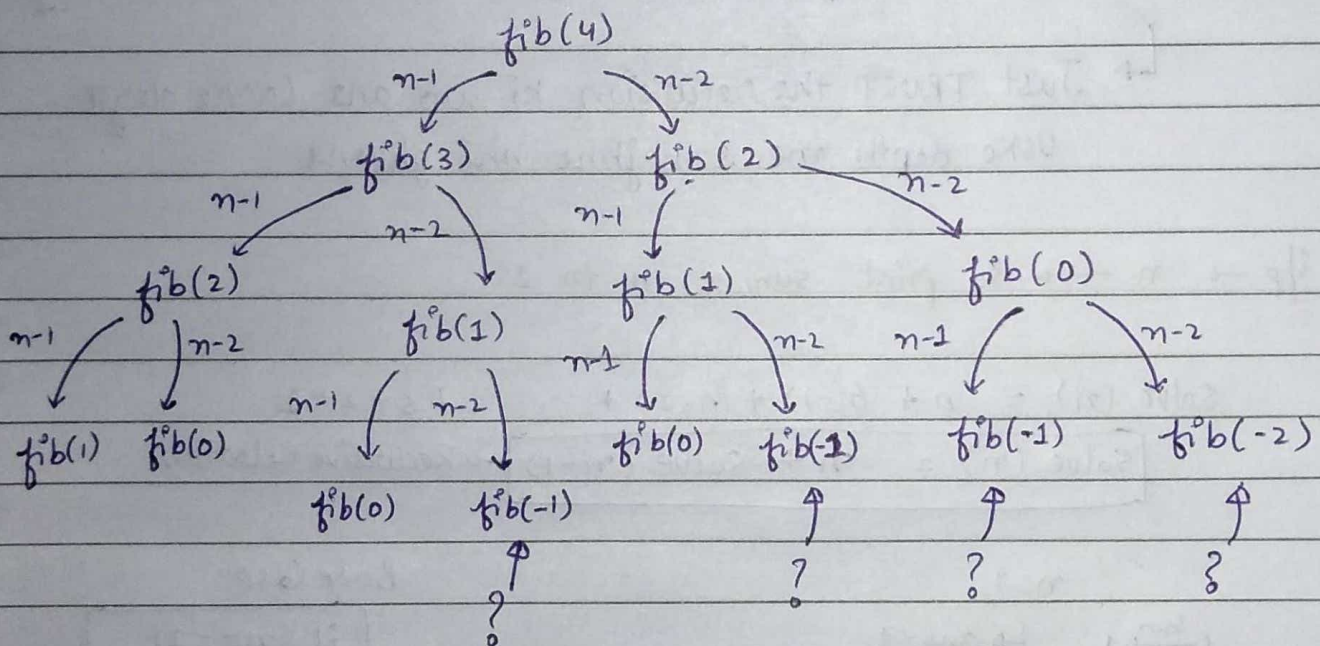 fib(4)
n-1 n-2
fib(3) fib(2)
n-1 n-2 n-1 n-2
fib(2) fib(1) fib(1) fib(0)
n-1 n-2 n-1 n-2 n-1 n-2 n-1 n-2
fib(1) fib(0) fib(0) fib(-1) fib(0) fib(-1) fib(-1) fib(-2)
? ? ? ?